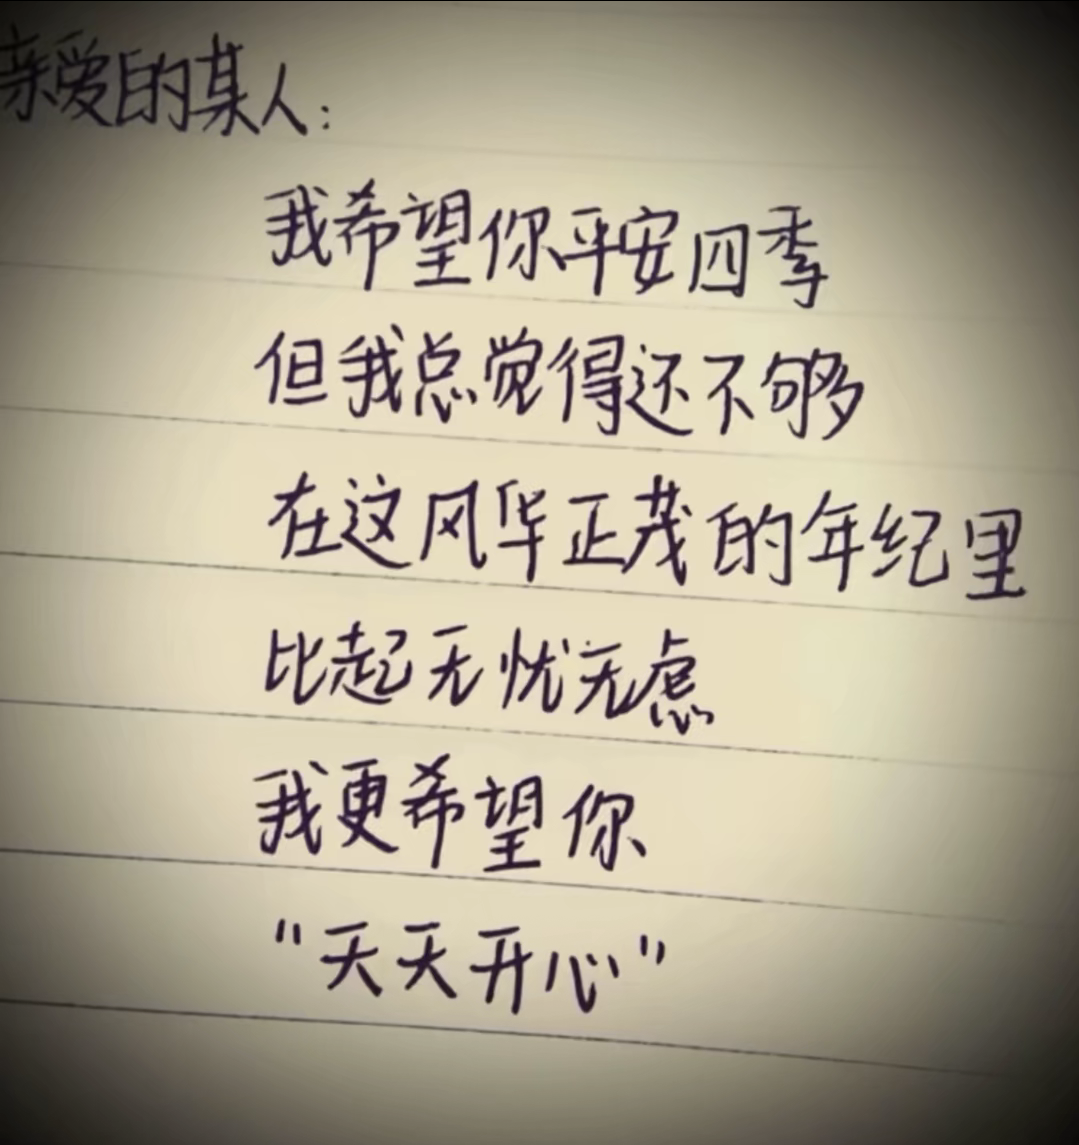 亲爱的某人：
我希望你平安四季
但我总觉得还不够
在这风华正茂的年纪里
比起无忧无虑
我更希望你
“天天开心”